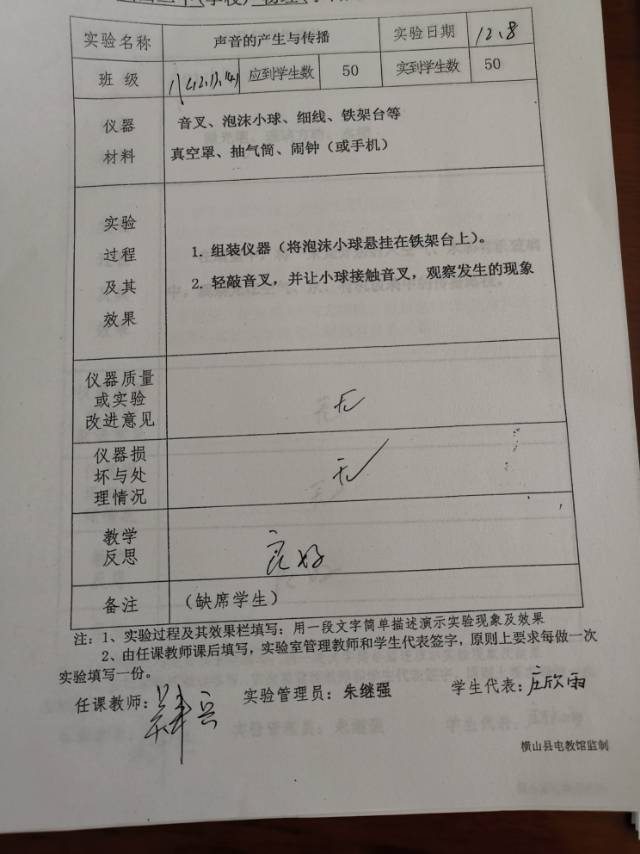 实验名称 声音的产生与传播 实验日期 12.8
班 级 应到学生数 50 实到学生数 50
仪器 音叉、泡沫小球、细线、铁架台等
材料 真空罩、抽气筒、闹钟（或手机）
实验
过程 1. 组装仪器（将泡沫小球悬挂在铁架台上）。
及其 2. 轻敲音叉，并让小球接触音叉，观察发生的现象
效果
仪器质量
或实验 无
改进意见
仪器损
坏与处 无
理情况
教学
反思 良好
备注 （缺席学生）
注：1、实验过程及其效果栏填写：用一段文字简单描述演示实验现象及效果
2、由任课教师课后填写，实验室管理教师和学生代表签字，原则上要求每做一次
实验填写一份。
任课教师： 实验管理员：朱继强 学生代表：庄欣雨
横山县电教馆监制